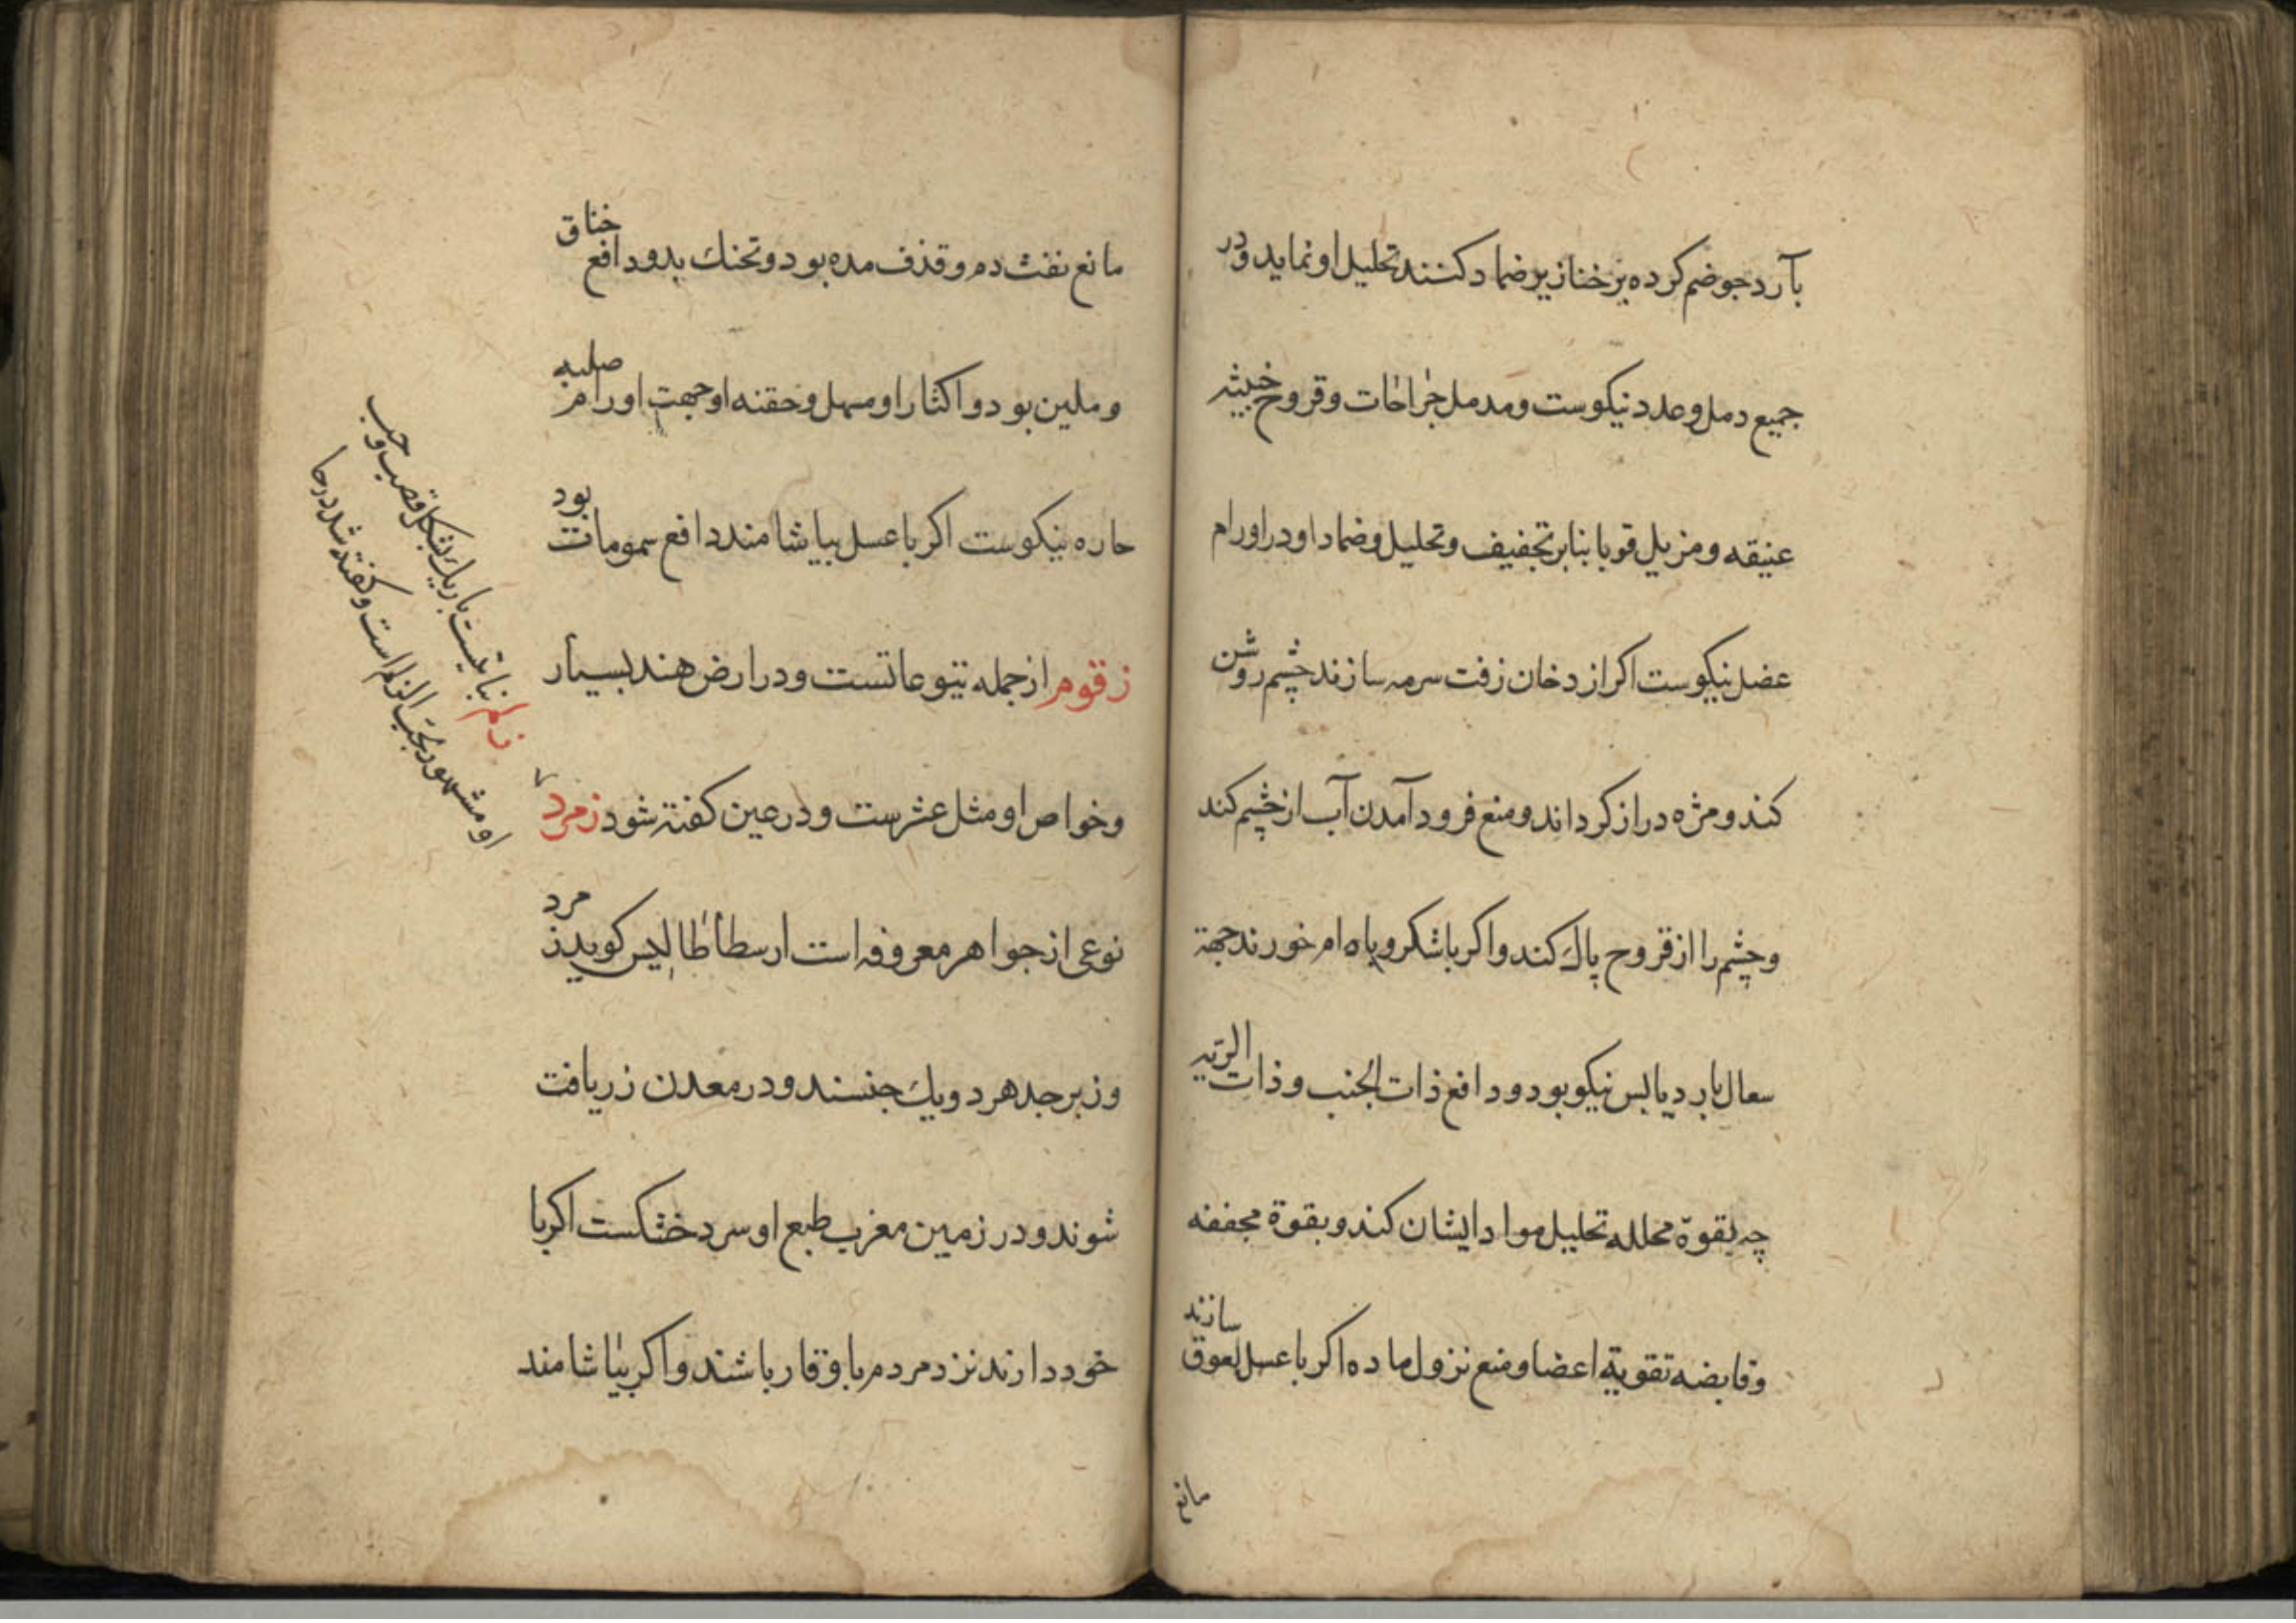 بآرد جو ضم کرده بر خنازیر ضماد کنند تحلیل او نماید و در
جمیع دمل و غدد نیکوست و مدمل جراحات و قروح خبیثه
عتیقه و مزیل قوبا بنابر تجفیف و تحلیل و ضماد او در اورام
عضل نیکوست اکر از دخان زفت سرمه سازند چشم روشن
کند و مژه دراز کرداند و منع فرود آمدن آب از چشم کند
و چشم را از قروح پاک کند و اکر باشکر و با خورند جهة
سعال بارد یابس نیکو بود و دافع ذات الجنب و ذات الریه
چه بقوة محلله تحلیل مواد ایشان کند و بقوة مجففه
و قابضه تقویة اعضا و منع نزول ماده اکر با عسل لعوق سازند
مانع
مانع نفث دم و قذف مده بود و تحنك بدو دافع خناق
و ملین بود و اکثار او مسهل و حقنه او جهت اورام صلبه
حاره نیکوست اکر با عسل بیاشامند دافع سمومات بود
زقوم از جمله یتوعاتست و در ارض هند بسیار
و خواص او مثل عشرست و در عین کفته شود زمرد
نوعی از جواهر معروفه است ارسطاطالیس کوید زمرد
و زبرجد هر دو یك جنسند و در معدن زر یافت
شوند و در زمین مغرب طبع او سرد خشکست اکر با
خود دارند نزد مردم با وقار باشند و اکر بیاشامند
زلم نباتیست باریك بشکل قصب و حب
او مشهور بحب الزلم است و کفته شد در حا